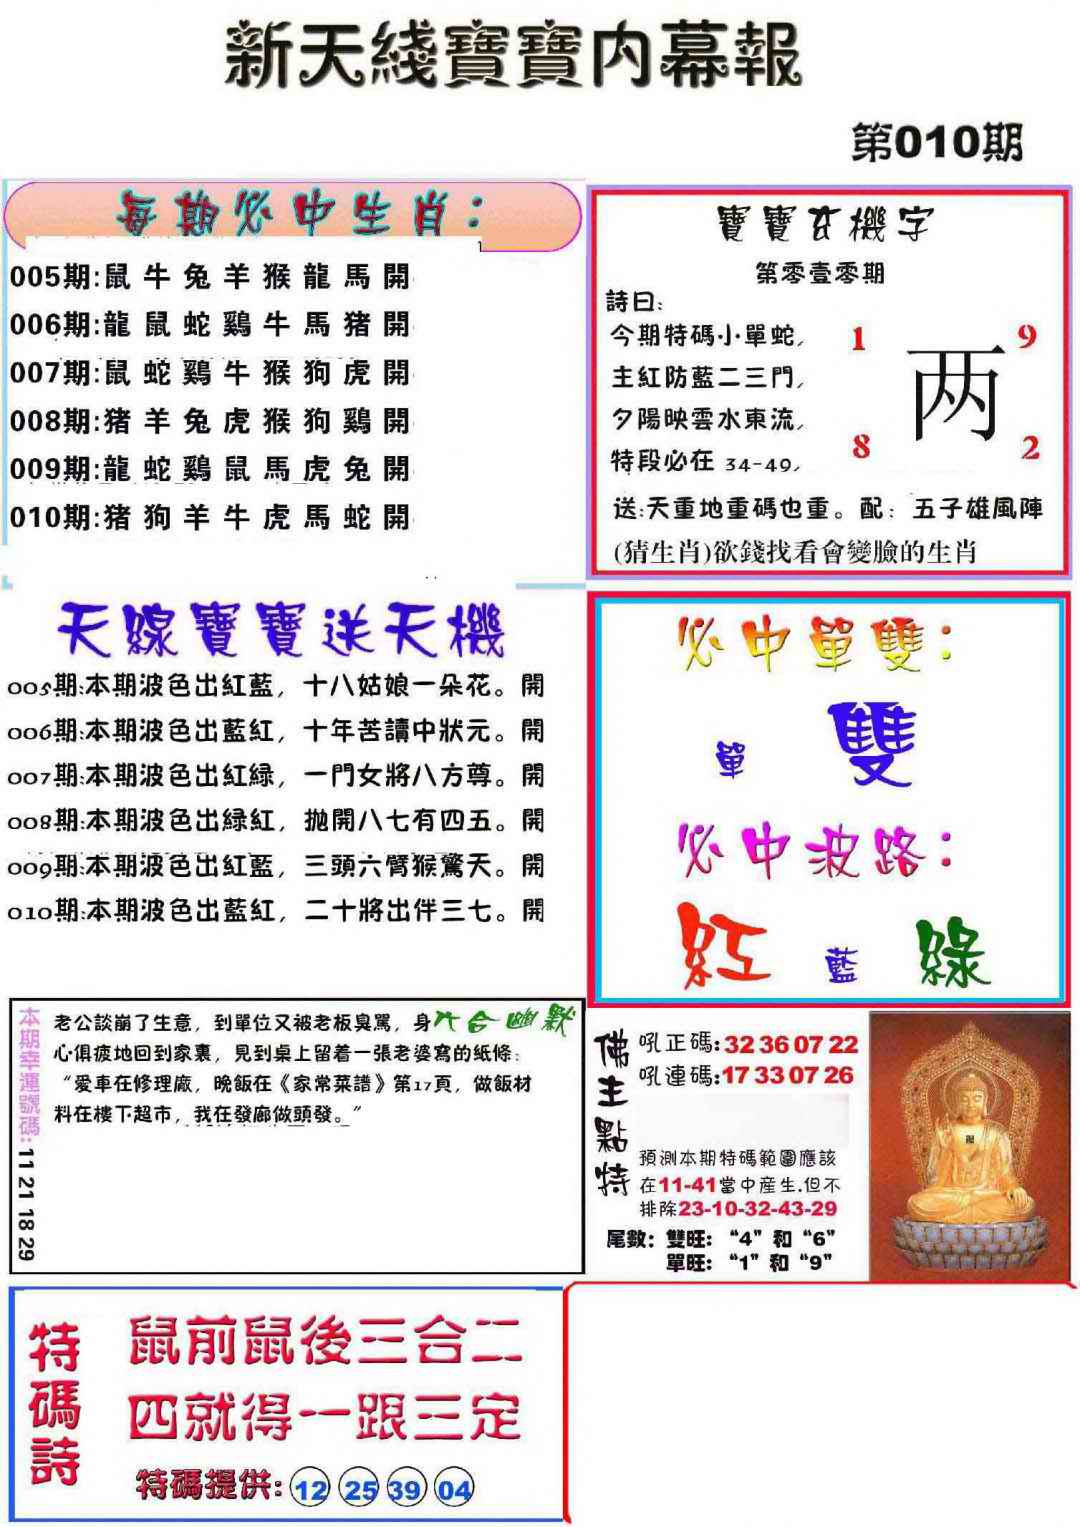 新天綫寶寶内幕報
第010期
每期必中生肖：
005期:鼠牛兔羊猴龍馬開
006期:龍鼠蛇鷄牛馬猪開
007期:鼠蛇鷄牛猴狗虎開
008期:猪羊兔虎猴狗鷄開
009期:龍蛇鷄鼠馬虎兔開
010期:猪狗羊牛虎馬蛇開
寶寶玄機字
第零壹零期
詩曰:
今期特碼小單蛇,
主紅防藍二三門,
夕陽映雲水東流,
特段必在 34-49,
1 9
两
8 2
送:天重地重碼也重。配：五子雄風陣
(猜生肖)欲錢找看會變臉的生肖
天線寶寶送天機
005期:本期波色出紅藍，十八姑娘一朵花。開
006期:本期波色出藍紅，十年苦讀中狀元。開
007期:本期波色出紅緑，一門女將八方尊。開
008期:本期波色出緑紅，抛開八七有四五。開
009期:本期波色出紅藍，三頭六臂猴驚天。開
010期:本期波色出藍紅，二十將出伴三七。開
必中單雙：
單 雙
必中波路：
紅 藍 綠
本期幸運號碼:11 21 18 29
六合幽默
老公談崩了生意，到單位又被老板臭駡，身
心俱疲地回到家裏，見到桌上留着一張老婆寫的紙條：
“愛車在修理廠，晚飯在《家常菜譜》第17頁，做飯材
料在樓下超市，我在發廊做頭發。”
佛主點特
吼正碼:32 36 07 22
吼連碼:17 33 07 26
預測本期特碼範圍應該
在11-41當中産生.但不
排除23-10-32-43-29
尾數：雙旺：“4”和“6”
單旺：“1”和“9”
特碼詩
鼠前鼠後三合二
四就得一跟三定
特碼提供: 12 25 39 04